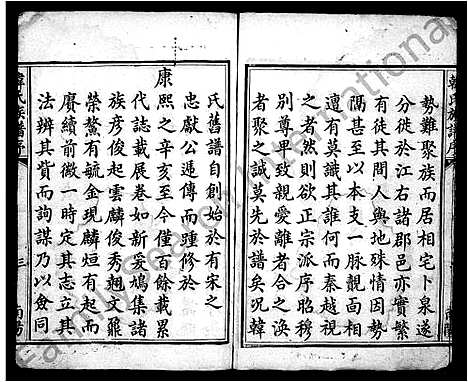 勢難聚族而居相宅卜泉遂
分徙於江右諸郡邑亦實繁
有徒其間人與地殊情因勢
隔甚至以本支一脉靚面相
遭有莫識其誰何而秦越視
之者然則欲正宗派序昭穆
別尊卑致親愛離者合之渙
者聚之誠莫先於譜矣况韓
氏舊譜自創始於有宋之
忠獻公遞傳而踵修於
康熙之辛亥至今僅百餘載累
代誌載展卷如新至鳩集諸
族彦俊起雲麟俊秀翹文
榮鰲有毓金現麟垣有起而
賡續前徽一時定其志立其
法辨其貲而詢謀乃以僉同
韓氏族譜序
三
南陽
Family Search International